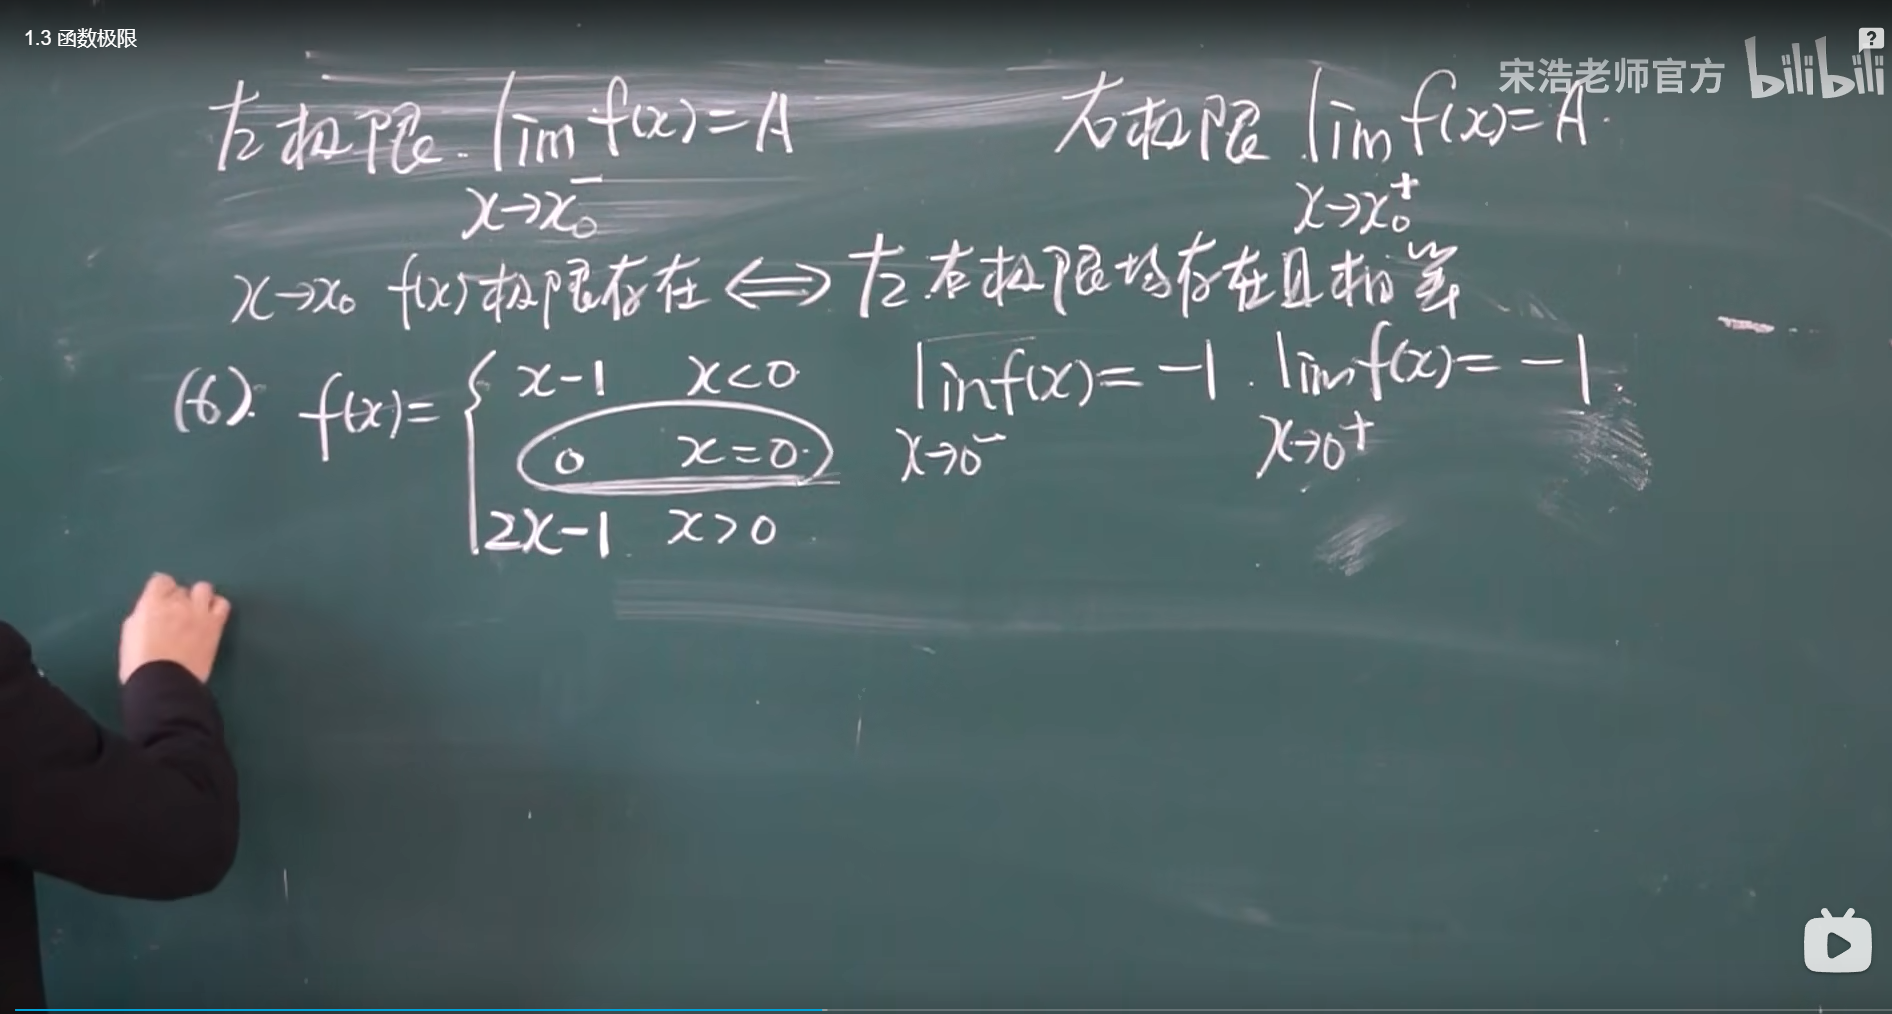 1.3 函数极限
宋浩老师官方 bilibili
左极限. lim f(x)=A
x→x₀⁻
右极限 lim f(x)=A.
x→x₀⁺
x→x₀ f(x)极限存在⟺左.右极限均存在且相等
(6). f(x)={ x-1 x<0
0 x=0
2x-1 x>0
lin f(x)=-1.
x→0⁻
lim f(x)=-1
x→0⁺